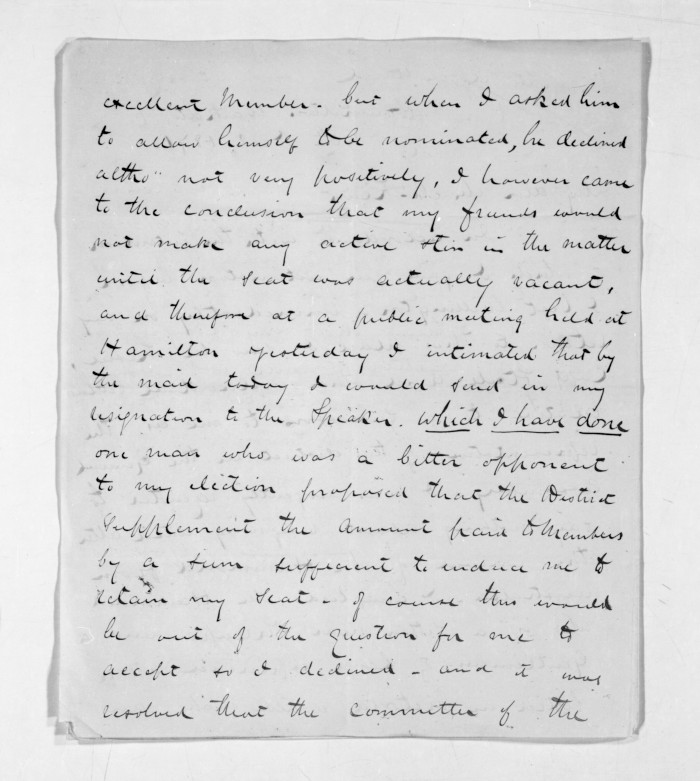 excellent Member. but when I asked him
to allow himself to be nominated, he declined
altho" not very positively, I however came
to the conclusion that my friends would
not make any active stir in the matter
until the seat was actually vacant,
and therefore at a public meeting held at
Hamilton yesterday I intimated that by
the mail today I would send in my
resignation to the Speaker. which I have done
one man who was a bitter opponent
to my election proposed that the District
Supplement the amount paid to Members
by a sum sufficient to induce me to
retain my seat - of course this would
be out of the question for me to
accept so I declined - and it was
resolved that the committee of the